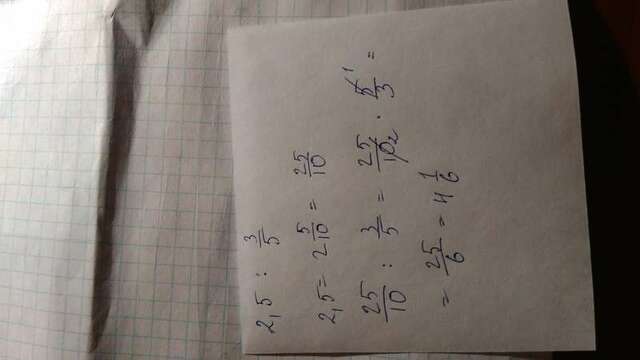 2,5 : 3/5
2,5 = 2 5/10 = 25/10
25/10 : 3/5 = 25/10 2 · 5/3 1 =
= 25/6 = 4 1/6